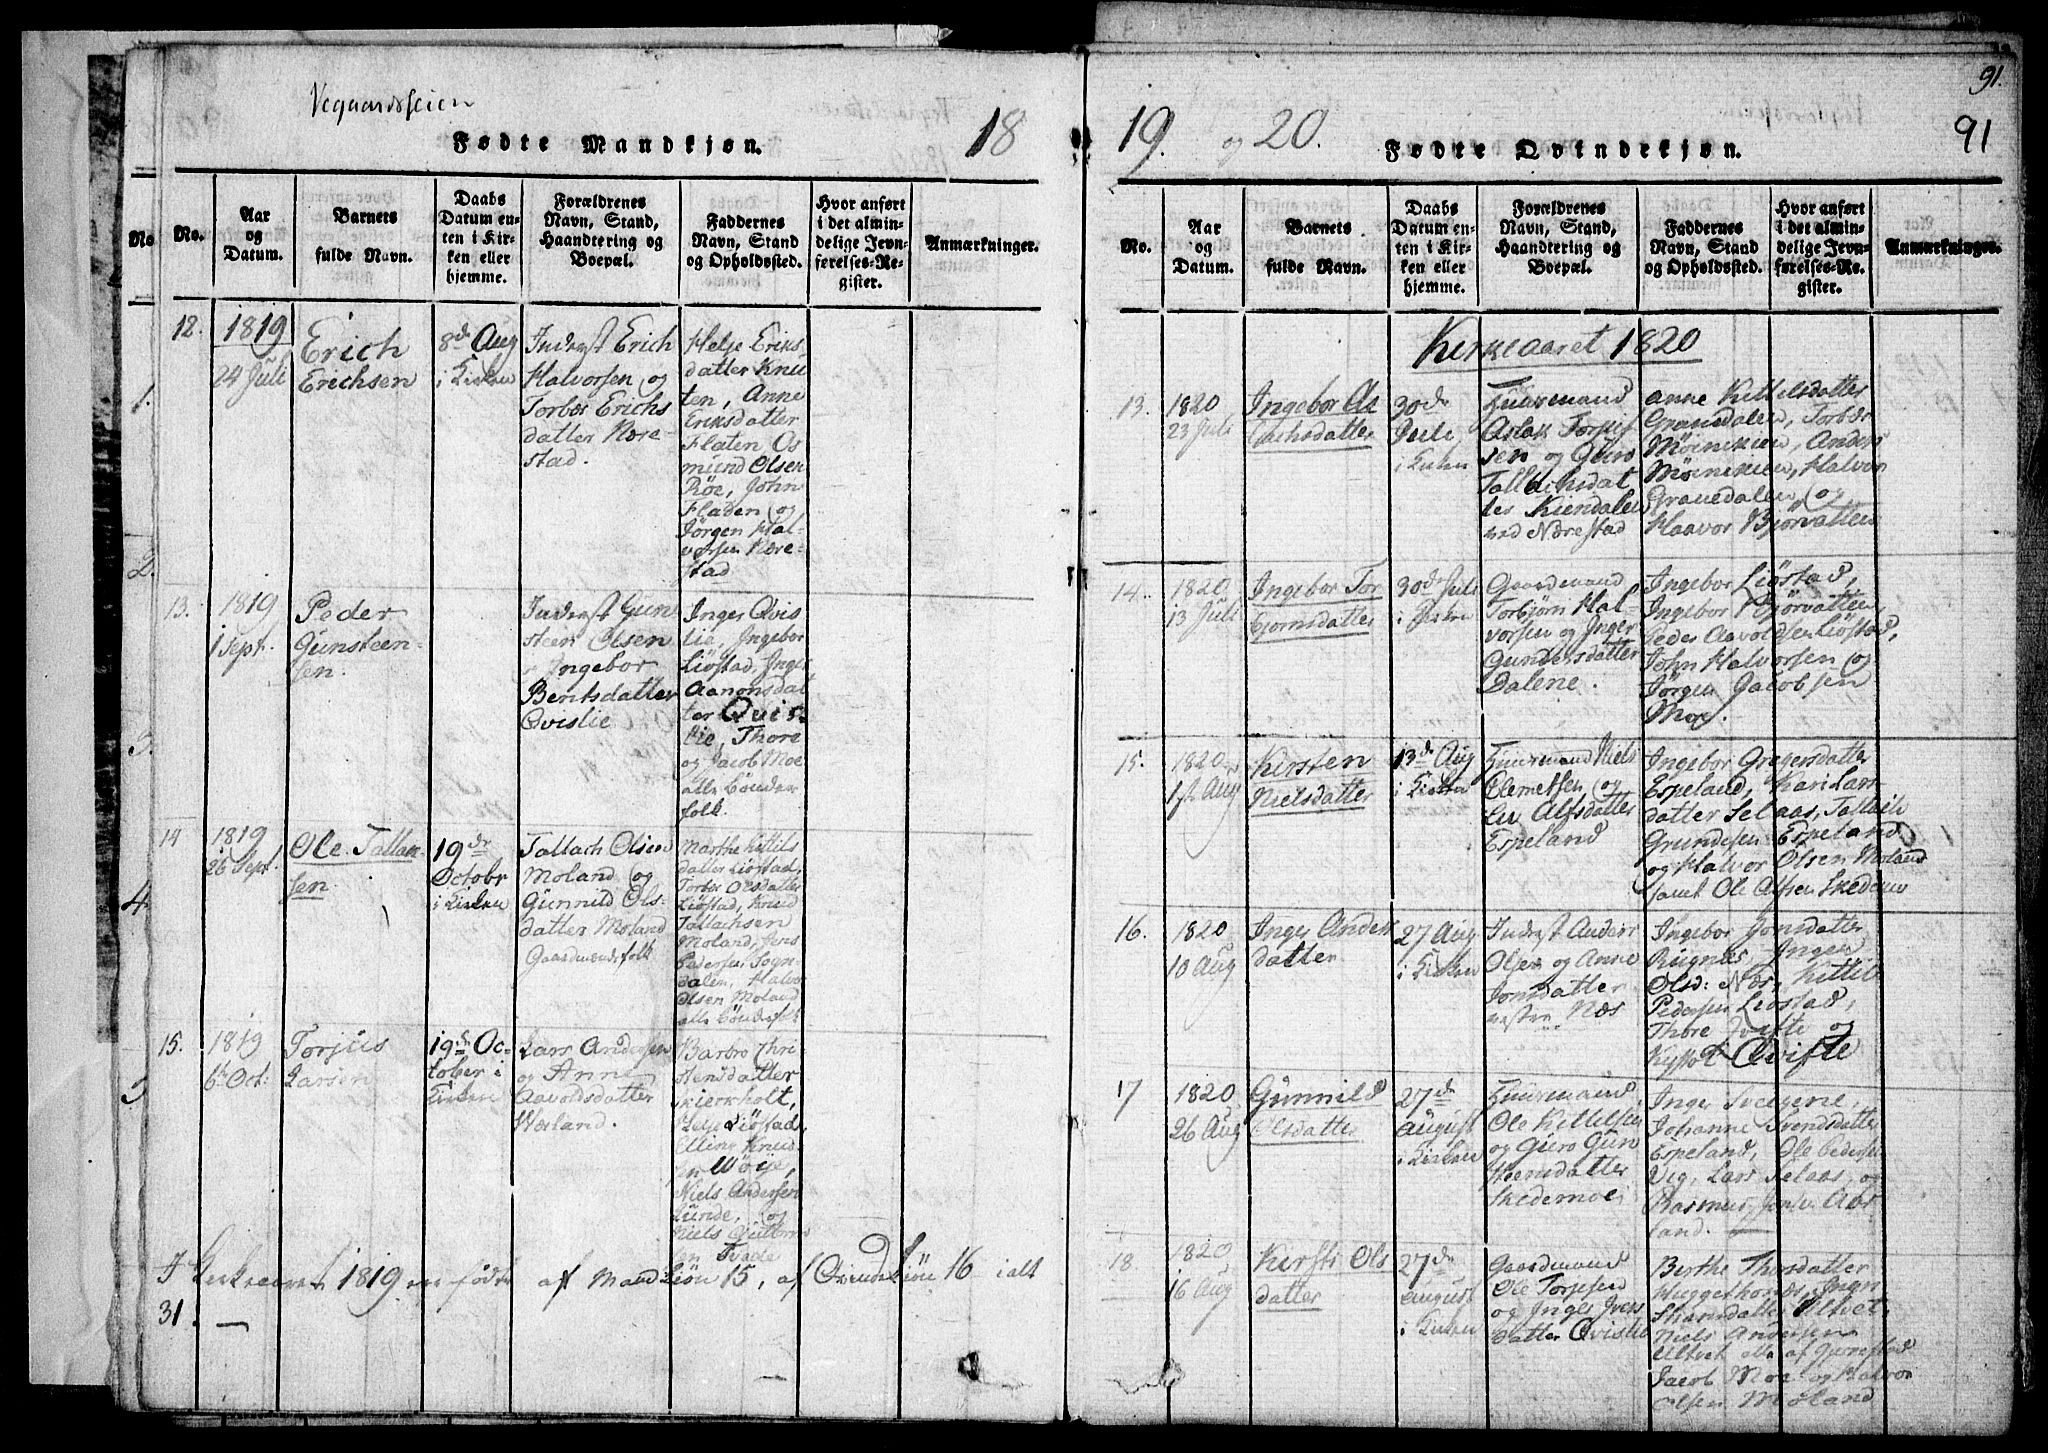 Vegaardsheien
Fødte Mandkjøn.
18
No.
No.
Aar
og
Datum.
Barnets
fulde Navn.
Daabs
Datum en-
ten i Kir-
ken eller
hjemme.
Forældrenes
Navn, Stand,
Haandtering og
Boepæl.
Faddernes
Navn, Stand
og Opholdssted.
Hvor anført
i det almin-
delige Jevn-
førelses-Re-
gister.
Anmærkninger.
12.
1819
24 Juli
Erich
Erichsen
8de Aug
i Kirken
Inderst Erich
Halvorsen og
Torber Erichs
datter Nære-
stad.
Helje Eriks-
datter Knu
ten, Anne
Eriksdatter
Flaten Os
mund Olsen
Røe, John
Fladen og
Jørgen Hal-
vorsen Nære-
stad
13.
1819
1 Sept.
Peder
Gunsteen-
sen.
Inderst Gun
steen Olsen
Ingebor
Bentsdatter
Qvislie
Inger Qvis
lie, Ingebor
Liøstad, Inger
Aanonsdat
ter Qvis-
lie, Thore
og Jacob Moe
alle Bønder
folk.
14
1819
26 Sept.
Ole Tallak-
sen.
19de
Octobr
i Kirken
Tallach Olsen
Moland og
Gunnild Ols-
datter Moland
Gaardmandsfolk
Marthe Kittils
datter Liøstad,
Torber Olsdatter
Liøstad, Knud
Tallachsen
Moland, Jens
Pedersen Sogn-
dalen, Halvor
Olsen Moland
alle Bøndefolk
15.
1819
6te Oct:
Torjus
Larsen
19de Oc-
tober i
Kirken
Lars Andersen
og Anne
Aavoldsdatter
Værland.
Barbro Chri
stensdatter
Kierkholt,
Helje Liøstad,
Elling Knud-
sen Vøye,
Niels Andersen
Lunde, og
Niels Guttorms
sen Tvede
I Kirkeaaret 1819 er fødte af Mandkiøn 15, af Qvindekiøn 16 ialt
31.
1.
2.
3.
4.
5
91.
91
19. og 20.
Fødte Qvindekjøn.
No.
Aar
og
Datum.
Barnets
fulde Navn.
Daabs
Datum en-
ten i Kir-
ken eller
hjemme.
Forældrenes
Navn, Stand,
Haandtering og
Boepæl.
Faddernes
Navn, Stand
og Opholdssted.
Hvor anført
i det almin-
delige Jevn-
førelses-Re-
gister.
Anmærkninger.
Kirkeaaret 1820
13.
1820
23 Juli
Ingebor As
lachsdatter
30de
Juli
i Kirken
Huusmand
Aslak Torkils
sen og Guro
Tallachsdat
ter Kiendalen
ved Nærestad
Anne Kittelsdatter
Granedalen, Torbær
Møinekien, Anders
Møinekien, Halvor
Granedalen og
Haavor Bjørvatten
14.
1820
13 Juli
Ingebor Tor
bjørnsdatter
30de Juli
i Kirken
Gaardmand
Torbjørn Hal-
vorsen og Inger
Gundersdatter
Dalene.
Ingebor Liøstad,
Ingebor Bjørvatten,
Peder Aavoldsen Liøstad,
John Halvorsen og
Jørgen Jacobsen
Moe.
15.
1820
1st Aug
Kirsten
Nielsdatter
13de Aug
i Kirken
Huusmand Niels
Clemetsen og
Liv Alfsdatter
Espeland
Ingebor Gregersdatter
Espeland, Kari Lars
datter Selaas, Talleif
Grundesen Espeland
og Halvor Olsen Moland
samt Ole Alfsen Skedemo
16.
1820
10 Aug
Inger Anders
datter
27 Aug
i Kirken
Inderst Anders
Olsen og Anne
Jonsdatter
vestre Næs
Ingebor Jonsdatter
Rugnæs, Inger
Olsd: Næs, Kittil
Pedersen Liøstad,
Thore Qvifte og
Qvifte
17
1820
26 Aug
Gunnild
Olsdatter
27de
August
i Kirken
Huusmand
Ole Kittelsen
og Guro Gun
steensdatter
Skedemoe
Inger Svelgene,
Johanne Svendsdatter
Espeland, Ole Pedersen
Vig, Lars Selaas, og
Rasmus Jensen Aas
land.
18
1820
16 Aug
Kirsti Ols
datter
27de
August
i Kirken
Gaardmand
Ole Torjesen
og Inger Ivers
datter Qvislie
Berthe Thorsdatter
Huggethonæs, Inger
Ulltvet
Niels Andersen
Ulltvet alle af Gjerrestad
Jacob Moe og Halvor
Olsen Moland